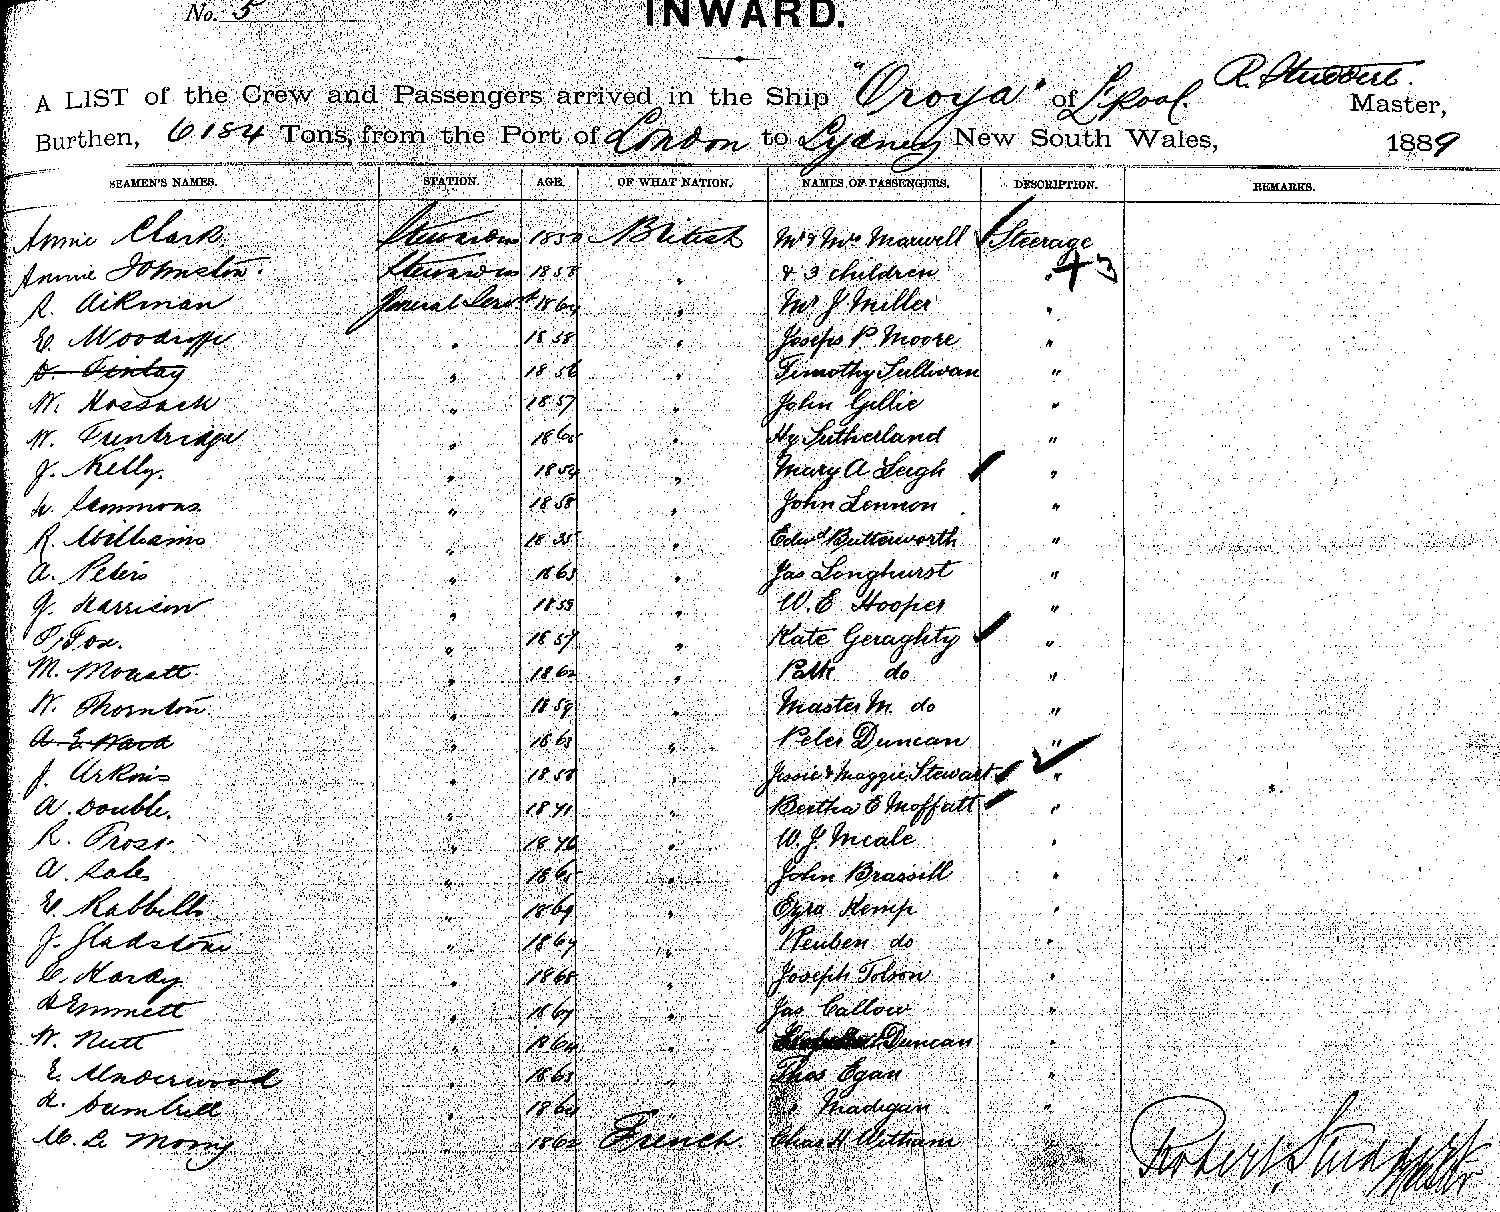 No. 5
INWARD.
A LIST of the Crew and Passengers arrived in the Ship "Oroya" of L'pool. R. Studdert. Master,
Burthen, 6184 Tons, from the Port of London to Sydney New South Wales, 1889
SEAMEN'S NAMES. STATION. AGE. OF WHAT NATION. NAMES OF PASSENGERS. DESCRIPTION. REMARKS.
Annie Clark 1850 British Mr & Mrs Maxwell Steerage
Annie Johnston. 1858 " & 3 children " + 3
R. Aikman General Servt 1864 " Mr J Miller "
E. Woodroffe " 1858 " Joseph P Moore "
D. Finlay " 1856 " Timothy Sullivan "
W. Hossack " 1857 " John Gillie "
W. Trenbridge " 186 " Hy Sutherland "
J. Kelly. " 1854 " Mary A Leigh "
Sammons " 1858 " John Lennon "
R. Williams " 1835 " Edwd Butterworth "
A. Peters " 1863 " Jas Longhurst "
G. Harrison " 1859 " W. E. Hooper "
Fox. " 1857 " Kate Geraghty "
M. Mouatt " 1862 " Patk do "
W. Thornton " 1859 " Master M. do "
A E Ward " 1863 " Peter Duncan "
J. " 1858 " Jessie & Maggie Stewart 2 "
A. Double. " 1841 " Bertha E Moffatt "
R. Frost. " 1846 " W. J. Meale "
A. Sales " 186 " John Brassill "
E. Rabbetts " 1869 " Ezra Kemp "
J. Gladstone " 1867 " Reuben do "
C. Hardy " 1868 " Joseph Tolson "
Emmett " 1867 " Jas Callow "
W. Nutt " 1864 " Duncan "
E. Underwood " 1863 " Thos Egan "
Gumbrell " 186 " Madigan "
M. Le " 1862 French Chas H Witham "
Robert Studdert
Master